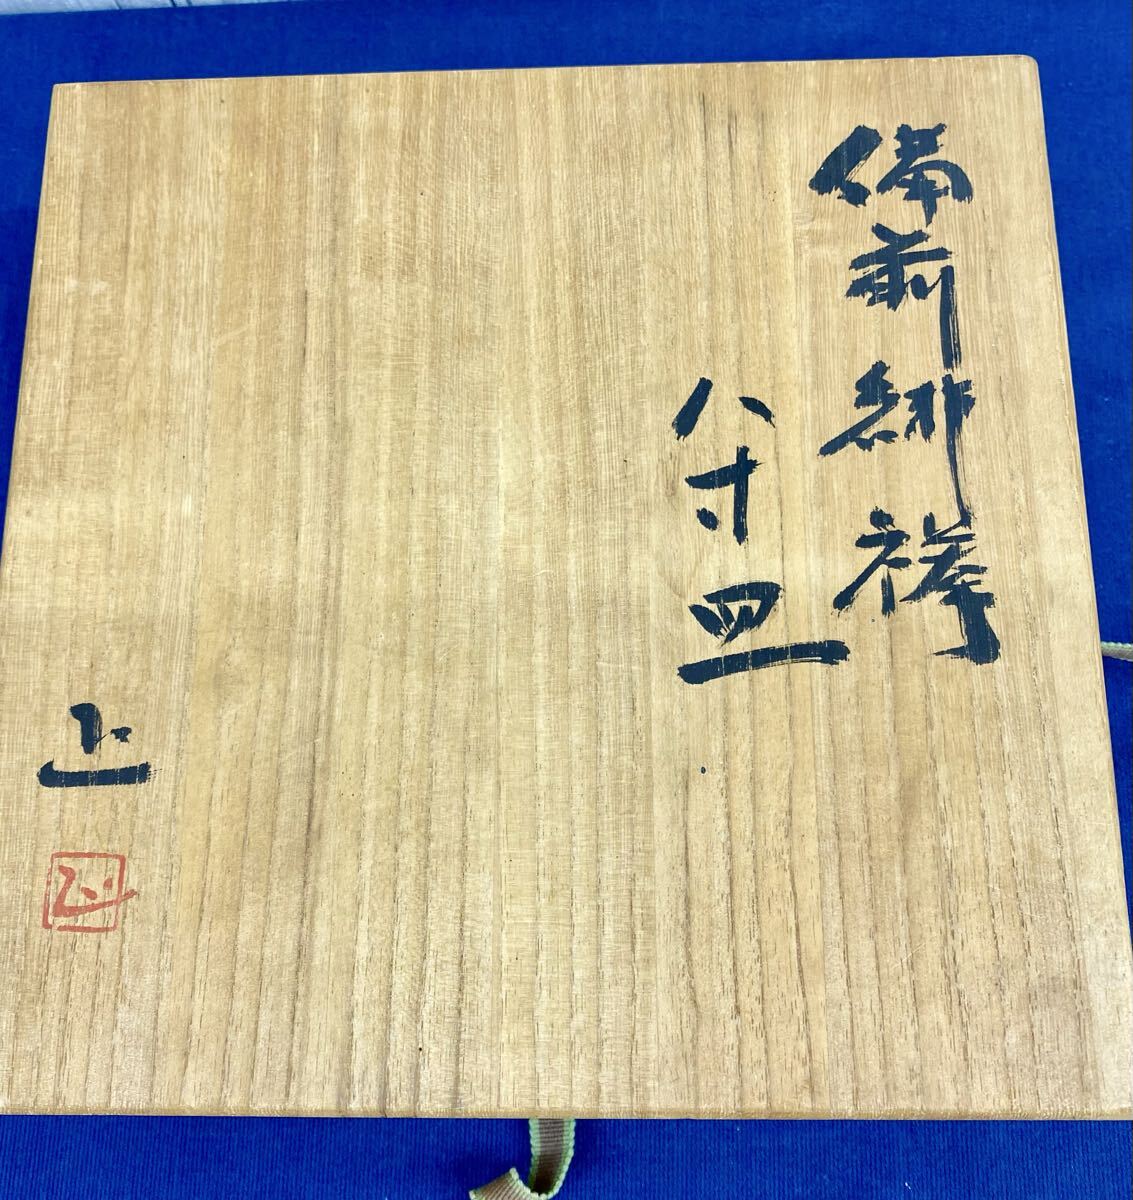 備前緋襷
八寸皿
上